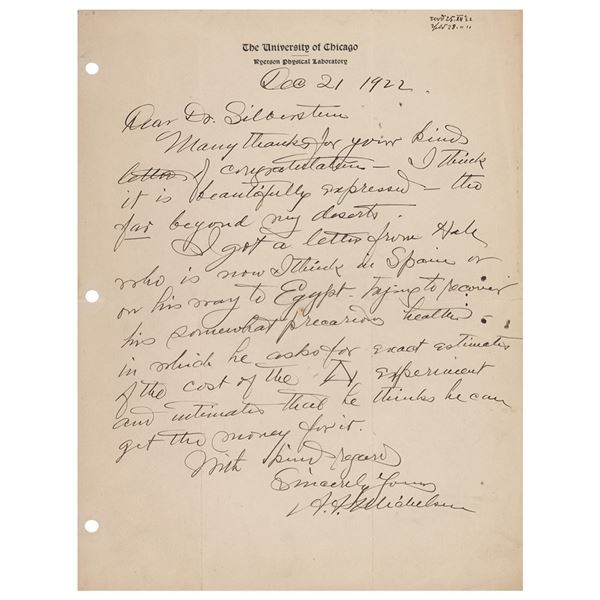 Recd 25.XII 22
The University of Chicago
Ryerson Physical Laboratory
Dec 21 1922.
Dear Dr. Silberstein
Many thanks for your kind
letter of congratulation – I think
it is beautifully expressed – tho
far beyond my deserts.
I got a letter from Hale
who is now I think in Spain or
on his way to Egypt – trying to recover
his somewhat precarious health –
in which he asks for exact estimates
of the cost of the experiment
and intimates that he thinks he can
get the money for it.
With kind regards
Sincerely Yours
A. A. Michelson